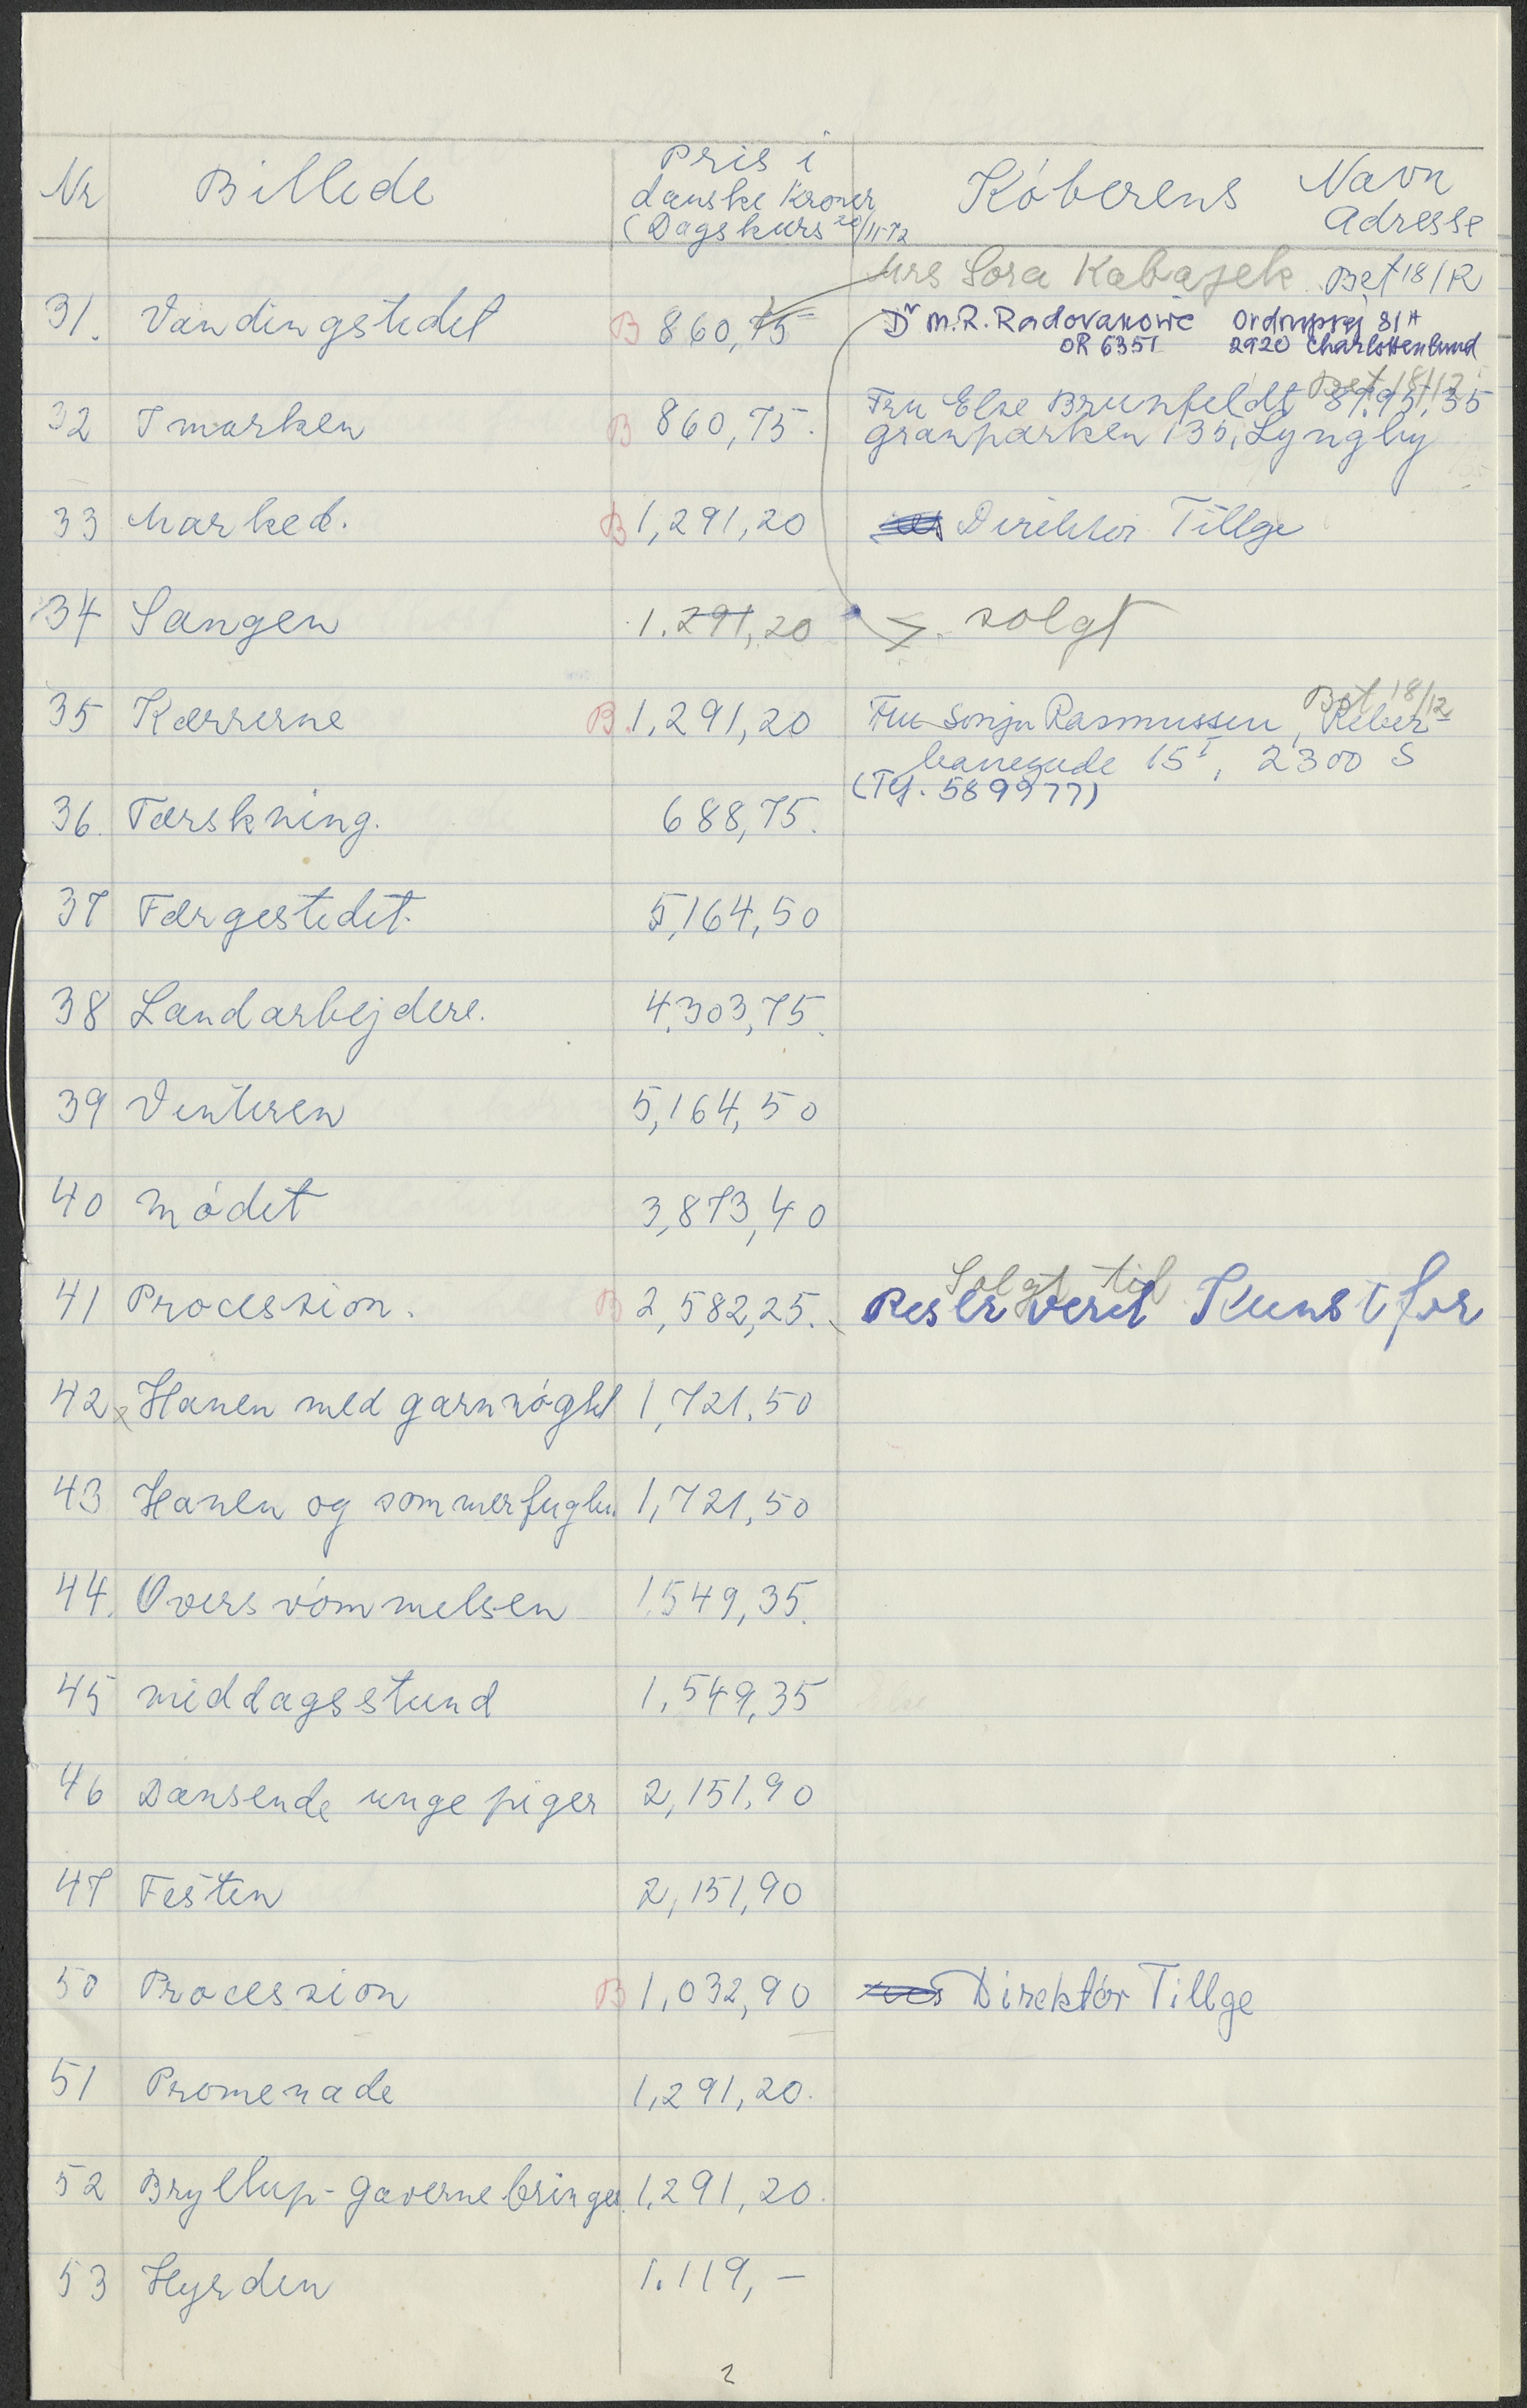 Nr Billede Pris i danske Kroner (Dagskurs 20/11-72 Köberens Navn Adresse
Mrs Sora Kabajek Bet 18/12
31. Vandingstedet B 860,75 Dr M.R. Radovanovic Ordrupvej 81A
OR 6351 2920 Charlottenlund
Bet 18/12
32 I marken B 860,75. Fru Else Brunfeldt 87.95.35
Granparken 135, Lyngby
33 Marked. B 1,291,20 Direktör Tillge
34 Sangen 1.291,20 solgt
Bet 18/12
35 Kærrerne B.1,291,20 Fru Sonja Rasmussen, Reber-
banegade 15I, 2300 S
(Tlf. 589977)
36. Tærskning. 688,75.
37 Færgestedet. 5,164,50
38 Landarbejdere. 4,303,75.
39 Vinteren 5,164,50
40 Mödet 3,873,40
Solgt til
41 Procession. B 2,582,25. Reserveret Kunstfor
42 Hanen med garnnögl 1,721,50
43 Hanen og sommerfuglen. 1,721,50
44. Oversvömmelsen 1.549,35.
45 middagsstund 1,549,35
46 Dansende unge piger 2,151,90
47 Festen 2,151,90
50 Procession B 1,032,90 Direktör Tillge
51 Promenade 1,291,20.
52 Bryllup-gaverne bringes. 1,291,20.
53 Hyrden 1.119,-
2